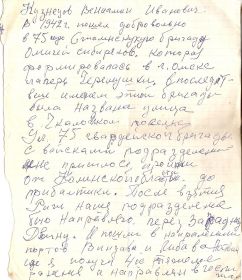 Кузнецов Вениамин Иванович.
В 1942 г пошел добровольно
в 75 юю Сталинскую бригаду
Омичей сибиряков, которая
формировалась в г. Омске
в последст
вии именем этой бригады
была названа улица
в Чкаловском поселке
75 гвардейской бригады
войсками подразделения
мне пришлось пройти
от Калининской области до
прибалтики. После взятия
Риги наше подразделение
было направлено через Западную
Двину. И пошли в направлении
портов Виндава и Либава
где я получил тяжелое
ранение и направлен в госпи